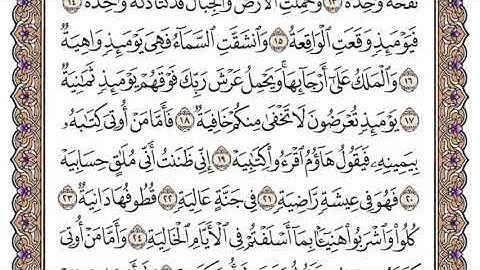 نَفْخَةٌ وَٰحِدَةٌ ١٣ وَحُمِلَتِ ٱلْأَرْضُ وَٱلْجِبَالُ فَدُكَّتَا دَكَّةً وَٰحِدَةً ١٤
فَيَوْمَئِذٍ وَقَعَتِ ٱلْوَاقِعَةُ ١٥ وَٱنشَقَّتِ ٱلسَّمَآءُ فَهِىَ يَوْمَئِذٍ وَاهِيَةٌ
١٦ وَٱلْمَلَكُ عَلَىٰٓ أَرْجَآئِهَا ۚ وَيَحْمِلُ عَرْشَ رَبِّكَ فَوْقَهُمْ يَوْمَئِذٍ ثَمَٰنِيَةٌ
١٧ يَوْمَئِذٍ تُعْرَضُونَ لَا تَخْفَىٰ مِنكُمْ خَافِيَةٌ ١٨ فَأَمَّا مَنْ أُوتِىَ كِتَٰبَهُۥ
بِيَمِينِهِۦ فَيَقُولُ هَآؤُمُ ٱقْرَءُوا۟ كِتَٰبِيَهْ ١٩ إِنِّى ظَنَنتُ أَنِّى مُلَٰقٍ حِسَابِيَهْ
٢٠ فَهُوَ فِى عِيشَةٍ رَّاضِيَةٍ ٢١ فِى جَنَّةٍ عَالِيَةٍ ٢٢ قُطُوفُهَا دَانِيَةٌ ٢٣
كُلُوا۟ وَٱشْرَبُوا۟ هَنِيٓـًٔۢا بِمَآ أَسْلَفْتُمْ فِى ٱلْأَيَّامِ ٱلْخَالِيَةِ ٢٤ وَأَمَّا مَنْ أُوتِىَ